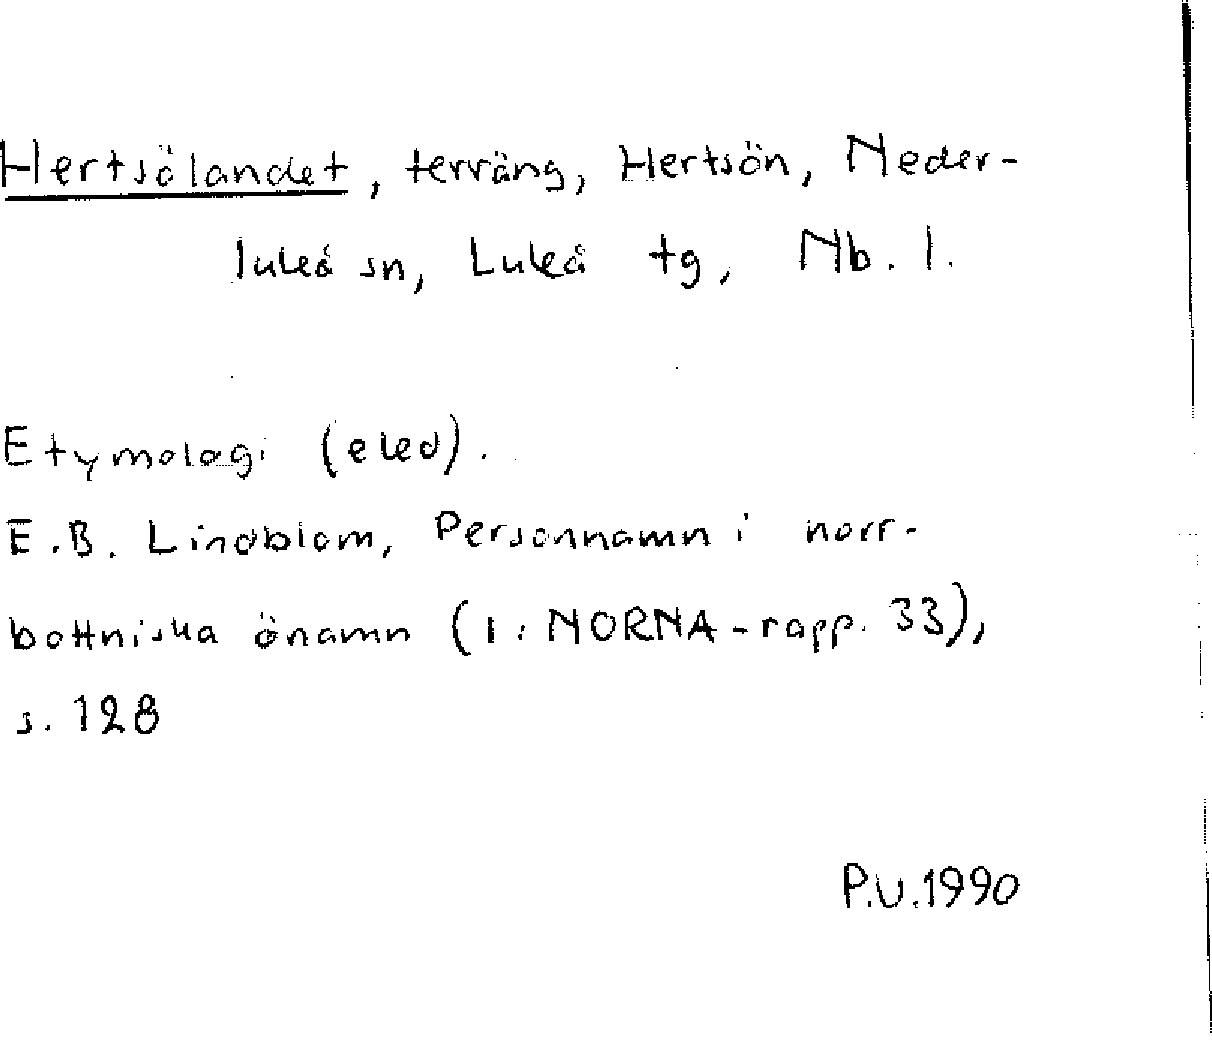 Hertsölandet, terräng, Hertsön, Neder-
luleå sn, Luleå tg, Nb. l.
Etymologi (eled).
E.B. Lindblom, Personnamn i norr-
bottniska önamn (I: NORNA-rapp. 33),
s. 128
P.U.1990